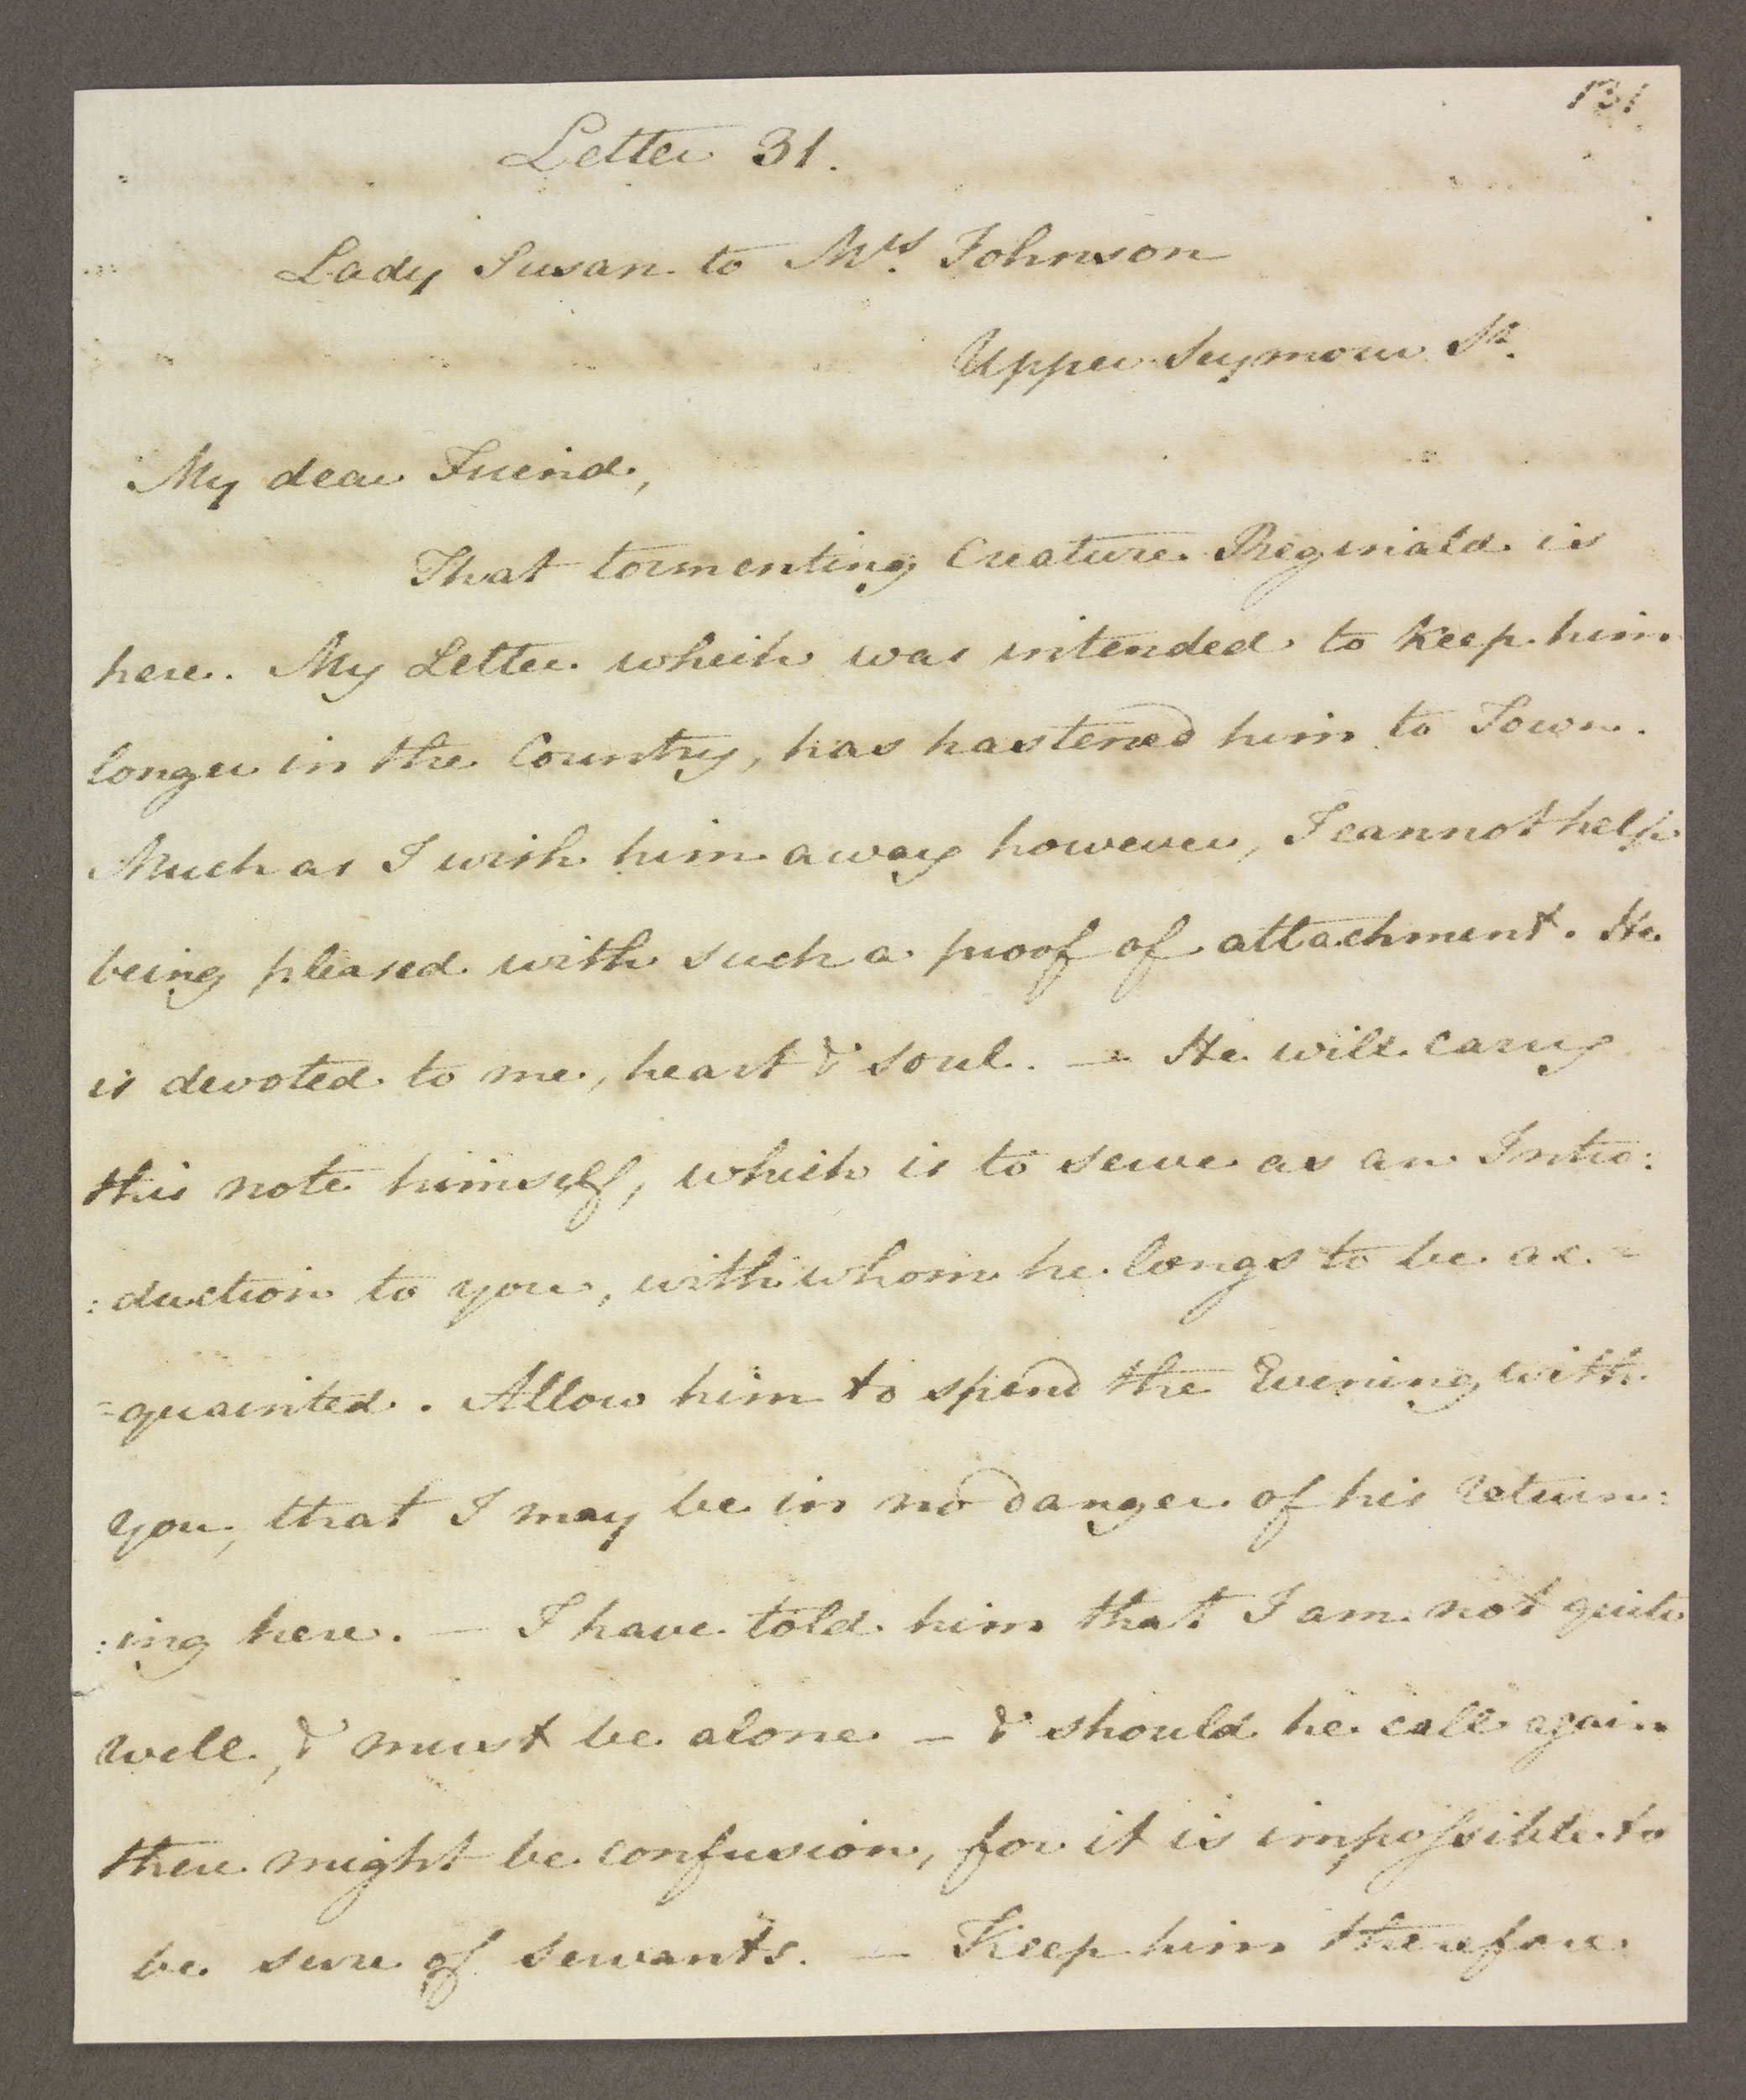 131
Letter 31.
Lady Susan to Mrs. Johnson
Upper Seymour St.
My dear Freind,
That tormenting Creature Reginald is
here. My Letter which was intended to keep him
longer in the Country, has hastened him to Town.
Much as I wish him away however, I cannot help
being pleased with such a proof of attachment. He
is devoted to me, heart & soul. — He will carry
this note himself, which is to serve as an Intro:
:duction to you, with whom he longs to be ac=
=quainted. Allow him to spend the Evening with
you, that I may be in no danger of his return:
:ing here. — I have told him that I am not quite
well, & must be alone — & should he call again
there might be confusion, for it is impossible to
be sure of servants. — Keep him therefore